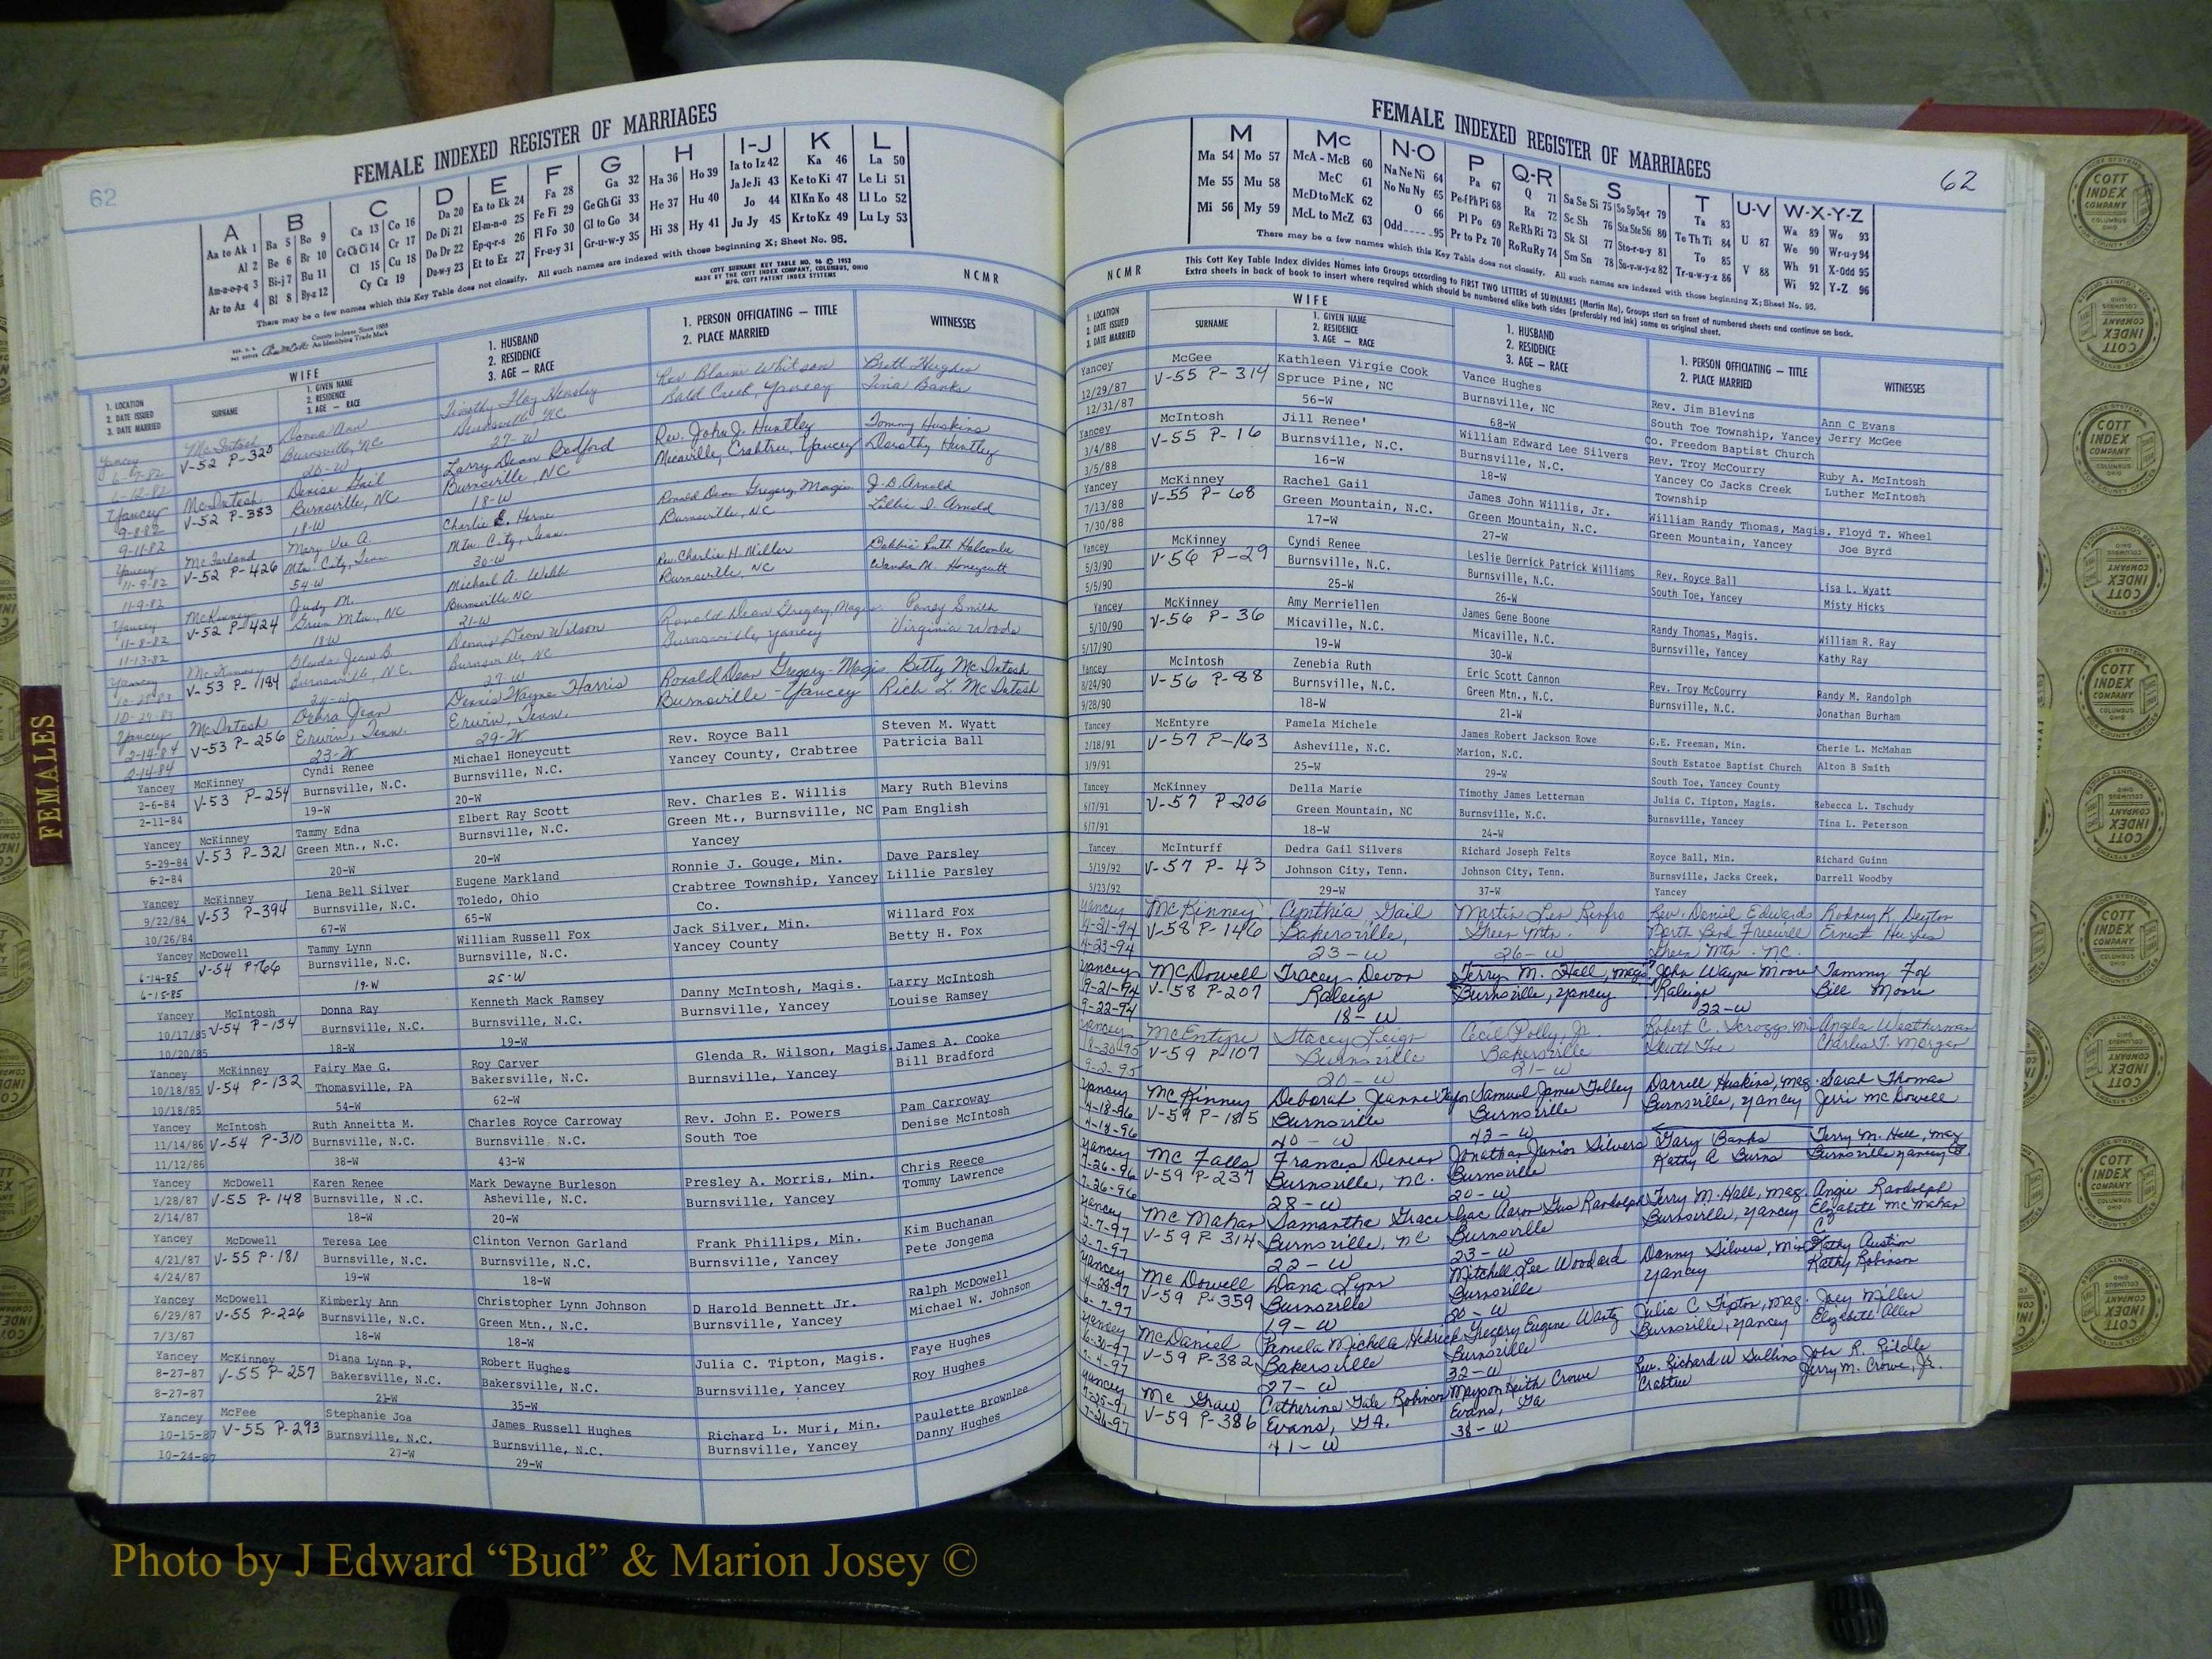 62
FEMALE INDEXED REGISTER OF MARRIAGES
A B C D E F G H I-J K L
Aa to Ak 1 Ba 5 Bo 9 Ca 13 Co 16 Da 20 Ea to Ek 24 Fa 28 Ga 32 Ha 36 Ho 39 Ia to Iz 42 Ka 46 La 50
Al 2 Be 6 Br 10 Ce Ch Ci 14 Cr 17 De Di 21 El-m-n-o 25 Fe Fi 29 Ge Gh Gi 33 He 37 Hu 40 Ja Je Ji 43 Ke to Ki 47 Le Li 51
Am-n-o-p-q 3 Bi-j 7 Bu 11 Cl 15 Cu 18 Do Dr 22 Ep-q-r-s 26 Fl Fo 30 Gl to Go 34 Hi 38 Hy 41 Jo 44 Kl Kn Ko 48 Ll Lo 52
Ar to Az 4 Bl 8 By-z 12 Cy Cz 19 Du-w-y 23 Et to Ez 27 Fr-u-y 31 Gr-u-w-y 35 Ju Jy 45 Kr to Kz 49 Lu Ly 53
There may be a few names which this Key Table does not classify. All such names are indexed with those beginning X; Sheet No. 95.
COTT SURNAME KEY TABLE NO. 96 © 1952
MADE BY THE COTT INDEX COMPANY, COLUMBUS, OHIO
MFG. COTT PATENT INDEX SYSTEMS
NCMR
County Indexes Since 1888
An Identifying Trade Mark
WIFE
1. LOCATION
2. DATE ISSUED
3. DATE MARRIED
SURNAME
1. GIVEN NAME
2. RESIDENCE
3. AGE — RACE
1. HUSBAND
2. RESIDENCE
3. AGE — RACE
1. PERSON OFFICIATING — TITLE
2. PLACE MARRIED
WITNESSES
Yancey McIntosh Donna Ann Timothy Floy Hensley Rev Blaine Whitson Brett Hughes
V-52 P-320 Burnsville, NC Burnsville NC Bald Creek, Yancey Tina Banks
20-W 27-W
Yancey McIntosh Denise Gail Larry Dean Bedford Rev. John J. Huntley Tommy Huskins
9-8-82 V-52 P-383 Burnsville, NC Burnsville, NC Micaville, Crabtree, Yancey Dorothy Huntley
9-11-82 18-W 18-W
Yancey McFarland Mary Vee A. Charlie E. Horne Ronald Dean Gregory, Magis J.D. Arnold
11-9-82 V-52 P-426 Mtn. City, Tenn Mtn. City, Tenn. Burnsville, NC Lillie I. Arnold
11-9-82 54-W 30-W
Yancey McKinney Judy M. Michael A. Webb Rev. Charlie H. Miller Bobbie Ruth Holcombe
11-8-82 V-52 P-424 Green Mtn., NC Burnsville NC Burnsville, NC Wanda M. Honeycutt
11-13-82 18-W 21-W
Yancey McKinney Glenda Jean B. Dennis Dean Wilson Ronald Dean Gregory, Magis Pansy Smith
V-53 P-184 Burnsville, N.C. Burnsville, NC Burnsville, Yancey Virginia Woods
24-W 27-W
Yancey McIntosh Debra Jean Dennis Wayne Harris Ronald Dean Gregory-Magis Betty McIntosh
2-14-84 V-53 P-256 Erwin, Tenn. Erwin, Tenn. Burnsville - Yancey Rich L. McIntosh
2-14-84 23-W 29-W
Yancey McKinney Cyndi Renee Michael Honeycutt Rev. Royce Ball Steven M. Wyatt
2-6-84 V-53 P-254 Burnsville, N.C. Burnsville, N.C. Yancey County, Crabtree Patricia Ball
2-11-84 19-W 20-W
Yancey McKinney Tammy Edna Elbert Ray Scott Rev. Charles E. Willis Mary Ruth Blevins
5-29-84 V-53 P-321 Green Mtn., N.C. Burnsville, N.C. Green Mt., Burnsville, NC Pam English
6-2-84 20-W 20-W Yancey
Yancey McKinney Lena Bell Silver Eugene Markland Ronnie J. Gouge, Min. Dave Parsley
9/22/84 V-53 P-394 Burnsville, N.C. Toledo, Ohio Crabtree Township, Yancey Lillie Parsley
10/26/84 67-W 65-W Co.
Yancey McDowell Tammy Lynn William Russell Fox Jack Silver, Min. Willard Fox
6-14-85 V-54 P-66 Burnsville, N.C. Burnsville, N.C. Yancey County Betty H. Fox
6-15-85 19-W 25-W
Yancey McIntosh Donna Ray Kenneth Mack Ramsey Danny McIntosh, Magis. Larry McIntosh
10/17/85 V-54 P-134 Burnsville, N.C. Burnsville, N.C. Burnsville, Yancey Louise Ramsey
10/20/85 18-W 19-W
Yancey McKinney Fairy Mae G. Roy Carver Glenda R. Wilson, Magis. James A. Cooke
10/18/85 V-54 P-132 Thomasville, PA Bakersville, N.C. Burnsville, Yancey Bill Bradford
10/18/85 54-W 62-W
Yancey McIntosh Ruth Anneitta M. Charles Royce Carroway Rev. John E. Powers Pam Carroway
11/14/86 V-54 P-310 Burnsville, N.C. Burnsville, N.C. South Toe Denise McIntosh
11/12/86 38-W 43-W
Yancey McDowell Karen Renee Mark Dewayne Burleson Presley A. Morris, Min. Chris Reece
1/28/87 V-55 P-148 Burnsville, N.C. Asheville, N.C. Burnsville, Yancey Tommy Lawrence
2/14/87 18-W 20-W
Yancey McDowell Teresa Lee Clinton Vernon Garland Frank Phillips, Min. Kim Buchanan
4/21/87 V-55 P-181 Burnsville, N.C. Burnsville, N.C. Burnsville, Yancey Pete Jongema
4/24/87 19-W 18-W
Yancey McDowell Kimberly Ann Christopher Lynn Johnson D Harold Bennett Jr. Ralph McDowell
6/29/87 V-55 P-226 Burnsville, N.C. Green Mtn., N.C. Burnsville, Yancey Michael W. Johnson
7/3/87 18-W 18-W
Yancey McKinney Diana Lynn P. Robert Hughes Julia C. Tipton, Magis. Faye Hughes
8-27-87 V-55 P-257 Bakersville, N.C. Bakersville, N.C. Burnsville, Yancey Roy Hughes
8-27-87 21-W 35-W
Yancey McFee Stephanie Joa James Russell Hughes Richard L. Muri, Min. Paulette Brownlee
10-15-87 V-55 P-293 Burnsville, N.C. Burnsville, N.C. Burnsville, Yancey Danny Hughes
10-24-87 27-W 29-W
FEMALES
FEMALE INDEXED REGISTER OF MARRIAGES
62
M Mc N-O P Q-R S T U-V W-X-Y-Z
Ma 54 Mo 57 McA - McB 60 Na Ne Ni 64 Pa 67 Q 71 Sa Se Si 75 So Sp Sq-r 79 Ta 83 U 87 Wa 89 Wo 93
Me 55 Mu 58 McC 61 No Nu Ny 65 Pe-f Ph Pi 68 Ra 72 Sc Sh 76 Sta Ste Sti 80 Te Th Ti 84 V 88 We 90 Wr-u-y 94
Mi 56 My 59 McD to McK 62 O 66 Pl Po 69 Re Rh Ri 73 Sk Sl 77 Sto-r-u-y 81 To 85 Wh 91 X-Odd 95
McL to McZ 63 Odd 95 Pr to Pz 70 Ro Ru Ry 74 Sm Sn 78 Su-v-w-y-z 82 Tr-u-w-y-z 86 Wi 92 Y-Z 96
There may be a few names which this Key Table does not classify. All such names are indexed with those beginning X; Sheet No. 95.
NCMR
This Cott Key Table Index divides Names into Groups according to FIRST TWO LETTERS of SURNAMES (Martin Ma). Groups start on front of numbered sheets and continue on back.
Extra sheets in back of book to insert where required which should be numbered alike both sides (preferably red ink) same as original sheet.
WIFE
1. LOCATION
2. DATE ISSUED
3. DATE MARRIED
SURNAME
1. GIVEN NAME
2. RESIDENCE
3. AGE — RACE
1. HUSBAND
2. RESIDENCE
3. AGE — RACE
1. PERSON OFFICIATING — TITLE
2. PLACE MARRIED
WITNESSES
Yancey McGee Kathleen Virgie Cook Vance Hughes Rev. Jim Blevins Ann C Evans
12/29/87 V-55 P-314 Spruce Pine, NC Burnsville, NC South Toe Township, Yancey Jerry McGee
12/31/87 56-W 68-W Co. Freedom Baptist Church
Yancey McIntosh Jill Renee' William Edward Lee Silvers Rev. Troy McCourry Ruby A. McIntosh
3/4/88 V-55 P-16 Burnsville, N.C. Burnsville, N.C. Yancey Co Jacks Creek Luther McIntosh
3/5/88 16-W 18-W Township
Yancey McKinney Rachel Gail James John Willis, Jr. William Randy Thomas, Magis. Floyd T. Wheel
7/13/88 V-55 P-68 Green Mountain, N.C. Green Mountain, N.C. Green Mountain, Yancey Joe Byrd
7/30/88 17-W 27-W
Yancey McKinney Cyndi Renee Leslie Derrick Patrick Williams Rev. Royce Ball Lisa L. Wyatt
5/3/90 V-56 P-29 Burnsville, N.C. Burnsville, N.C. South Toe, Yancey Misty Hicks
5/5/90 25-W 26-W
Yancey McKinney Amy Merriellen James Gene Boone Randy Thomas, Magis. William R. Ray
5/10/90 V-56 P-36 Micaville, N.C. Micaville, N.C. Burnsville, Yancey Kathy Ray
5/17/90 19-W 30-W
Yancey McIntosh Zenebia Ruth Eric Scott Cannon Rev. Troy McCourry Randy M. Randolph
8/24/90 V-56 P-88 Burnsville, N.C. Green Mtn., N.C. Burnsville, N.C. Jonathan Burham
9/28/90 18-W 21-W
Yancey McEntyre Pamela Michele James Robert Jackson Rowe G.E. Freeman, Min. Cherie L. McMahan
2/18/91 V-57 P-163 Asheville, N.C. Marion, N.C. South Estatoe Baptist Church Alton B Smith
3/9/91 25-W 29-W South Toe, Yancey County
Yancey McKinney Della Marie Timothy James Letterman Julia C. Tipton, Magis. Rebecca L. Tschudy
6/7/91 V-57 P-206 Green Mountain, NC Burnsville, N.C. Burnsville, Yancey Tina L. Peterson
6/7/91 18-W 24-W
Yancey McInturff Dedra Gail Silvers Richard Joseph Felts Royce Ball, Min. Richard Guinn
5/19/92 V-57 P-43 Johnson City, Tenn. Johnson City, Tenn. Burnsville, Jacks Creek, Darrell Woodby
5/23/92 29-W 37-W Yancey
Yancey McKinney Cynthia Gail Martin Lee Renfro Rev. Daniel Edwards Rodney K. Deyton
4-21-94 V-58 P-146 Bakersville, Green Mtn. Perth Bod Freewill Ernest Hughes
4-23-94 23-W 26-W Green Mtn. NC.
Yancey McDowell Tracey Devon Terry M. Hall, Magis John Wayne Moore Tammy Fox
9-21-94 V-58 P-207 Raleigh Burnsville, Yancey Raleigh Bill Moore
9-22-94 18-W 22-W
Yancey McEntyre Stacey Leigh Cecil Polly, Jr. Robert C. Scroggs, Min Angela Weatherman
8-30-95 V-59 P-107 Burnsville Bakersville South Toe Charles T. Morgan
9-2-95 20-W 21-W
Yancey McKinney Deborah Jeanne Taylor Samuel James Tolley Darrell Huskins, Mag. Sarah Thomas
4-18-96 V-59 P-185 Burnsville Burnsville Burnsville, Yancey Jerri McDowell
4-18-96 40-W 42-W
Yancey McFalls Frances Denean Jonathan Junior Silvers Gary Banks Terry M. Hall, Mag
7-26-96 V-59 P-237 Burnsville, NC. Burnsville Kathy A Burns Burnsville Yancey
7-26-96 28-W 20-W
Yancey McMahan Samantha Grace Isac Aaron Gus Randolph Terry M. Hall, Mag. Angie Randolph
2-7-97 V-59 P-314 Burnsville, NC Burnsville Burnsville, Yancey Elizabeth McMahan
2-7-97 22-W 23-W
Yancey McDowell Dana Lynn Mitchell Lee Woodard Danny Silvers, Min Kathy Austin
4-28-97 V-59 P-359 Burnsville Burnsville Yancey Kathy Robinson
6-7-97 19-W 20-W
Yancey McDaniel Pamela Michela Hedrick Gregory Eugene Wantz Julia C Tipton, Mag. Joey Miller
6-30-97 V-59 P-382 Bakersville Burnsville Burnsville, Yancey Elizabeth Allen
7-4-97 27-W 32-W
Yancey McGraw Catherine Gale Robinson Mayson Keith Crowe Rev. Richard W Sullins John R. Riddle
7-25-97 V-59 P-386 Evans, GA. Evans, Ga Crabtree Jerry M. Crowe, Jr.
7-26-97 41-W 38-W
COTT INDEX COMPANY COLUMBUS OHIO
INDEX SYSTEMS FOR COUNTY OFFICES
Photo by J Edward “Bud” & Marion Josey ©